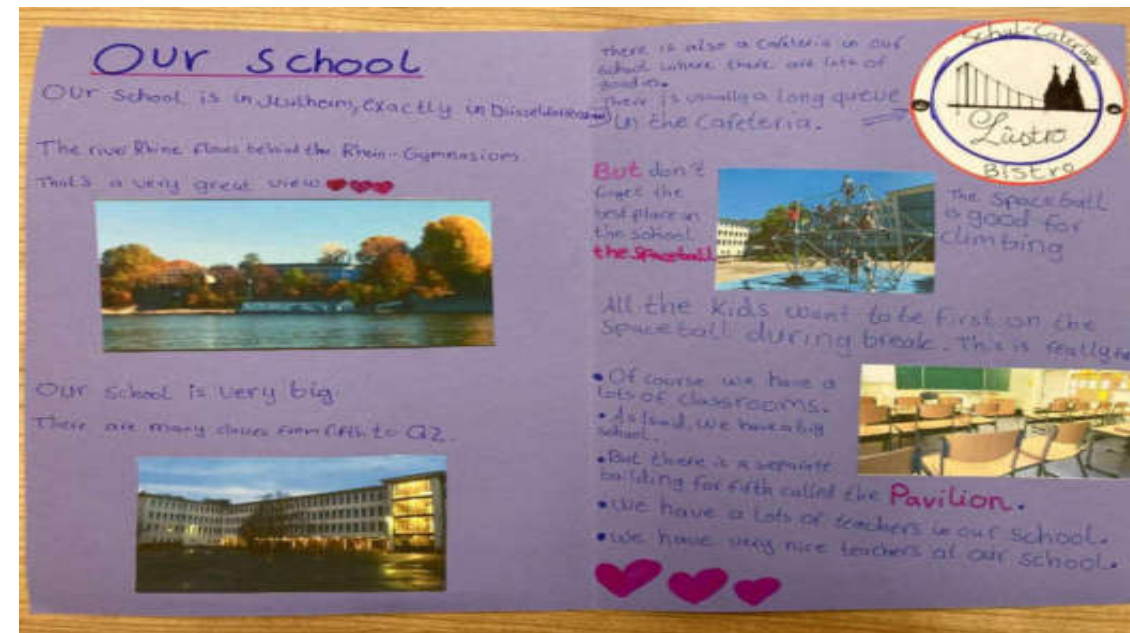 Our School
Our school is in Mulheim, exactly in Düsseldorfer
The river Rhine flows behind the Rhein-Gymnasium
That's a very great view
Our school is very big.
There are many classes from fifth to Q2.
There is also a Cafeteria in our
school where there are lots of
goodies.
There is usually a long queue
in the Cafeteria.
Schul-Catering
Lüstro
Bistro
But don't
forget the
best place in
the school
the Spaceball
The Spaceball
is good for
climbing
All the kids want to be first on the
Spaceball during break. This is really
• Of course we have a
lots of classrooms.
• As I said, we have a big
school.
• But there is a separate
building for fifth called the Pavilion.
• We have a lots of teachers in our school.
• we have very nice teachers at our school.